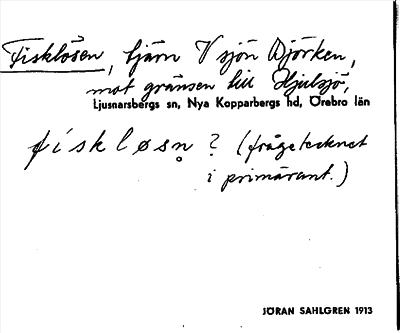 Fisklösen, tjärn V sjön Björken,
mot gränsen till Hjulsjö,
Ljusnarsbergs sn, Nya Kopparbergs hd, Örebro län
fiskløsn̥ ? (frågetecknet
i primärant.)
JÖRAN SAHLGREN 1913